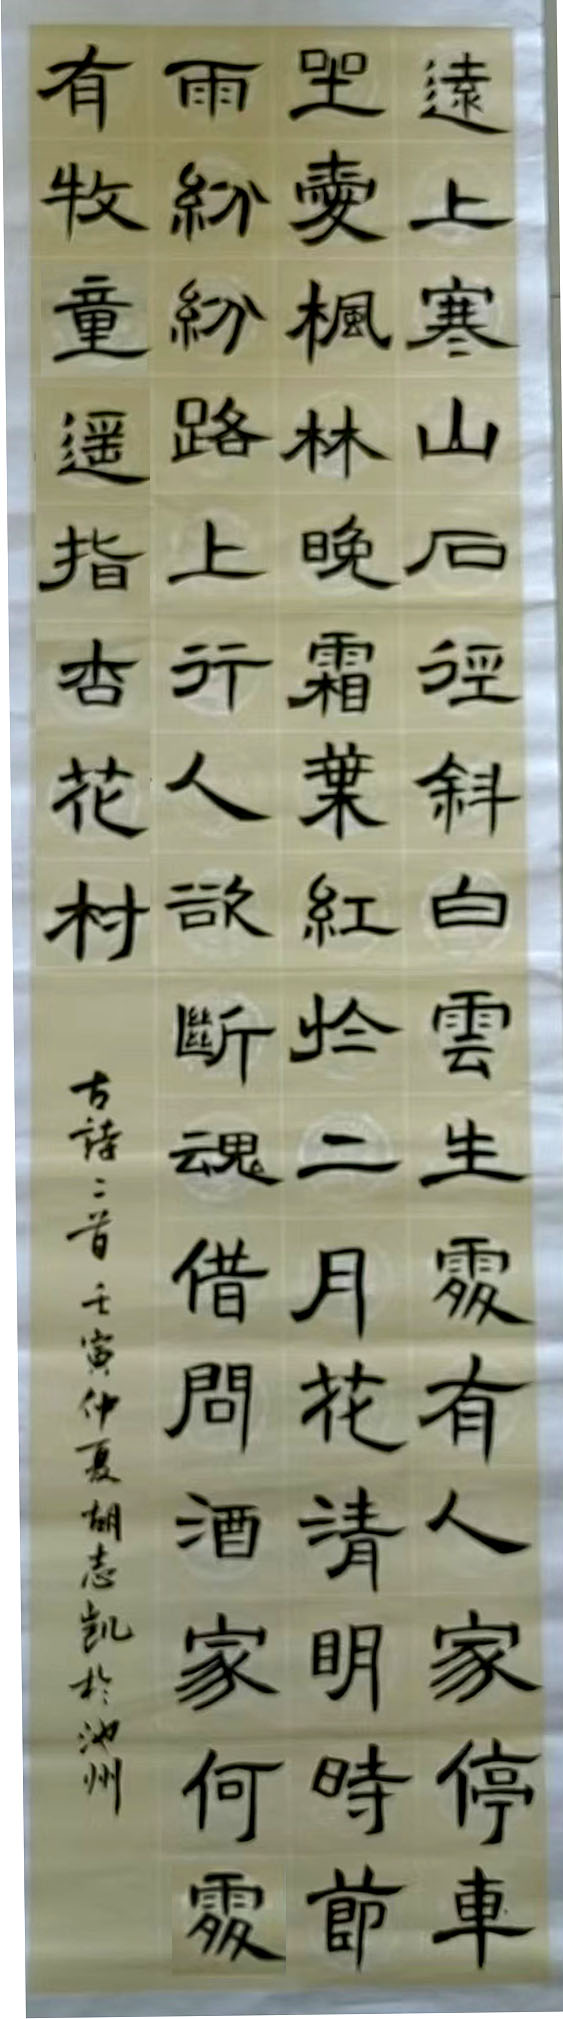 遠上寒山石徑斜白雲生處有人家停車
坐愛楓林晚霜葉紅於二月花清明時節
雨紛紛路上行人欲斷魂借問酒家何處
有牧童遥指杏花村
古詩二首壬寅仲夏胡志凱於池州